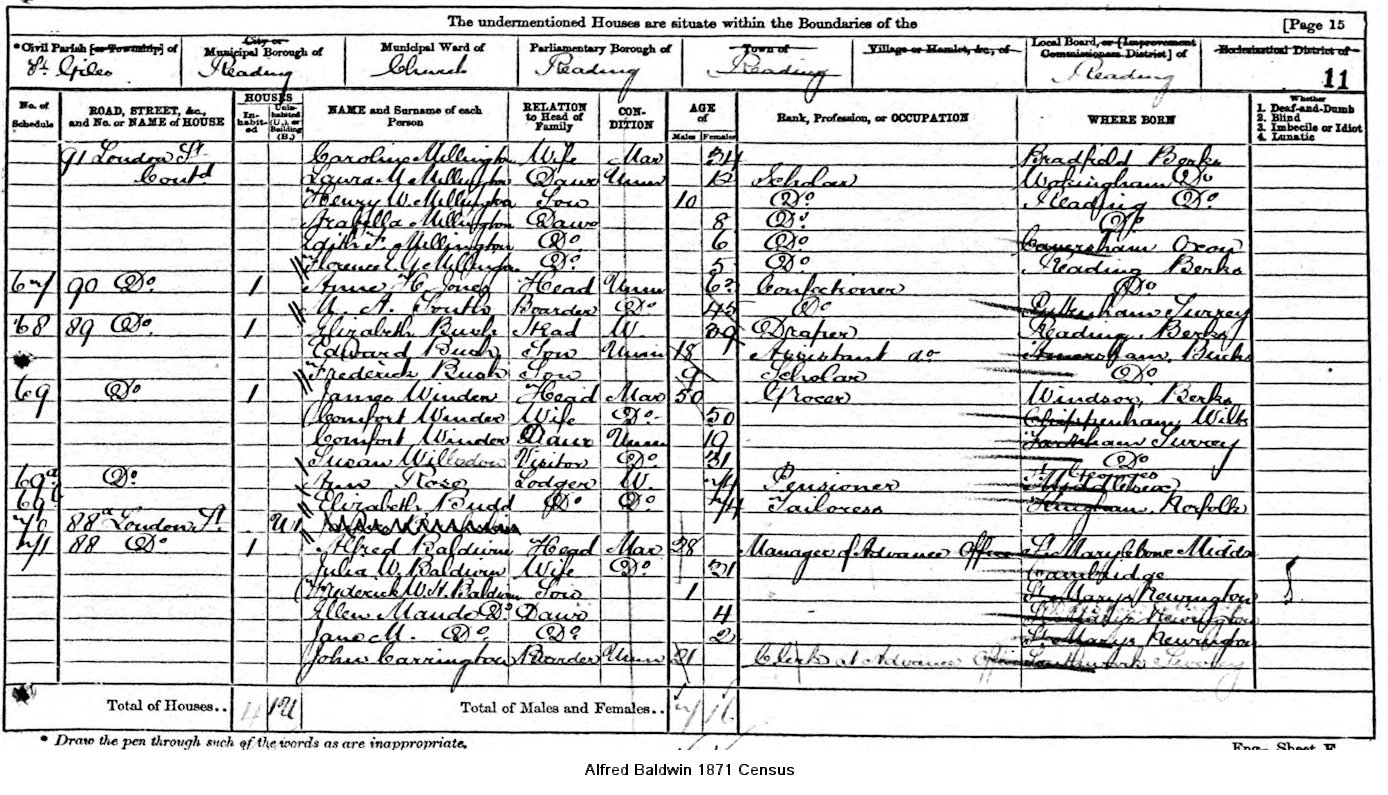 The undermentioned Houses are situate within the Boundaries of the [Page 15
*Civil Parish [or Township] of City or Municipal Borough of Municipal Ward of Parliamentary Borough of Town of Village or Hamlet, &c., of Local Board, or [Improvement Commissioners District] of Ecclesiastical District of
St. Giles Reading Church Reading Reading Reading 11
No. of Schedule ROAD, STREET, &c., and No. or NAME of HOUSE HOUSES In-habit-ed Unin-habited (U.), or Building (B.) NAME and Surname of each Person RELATION to Head of Family CON-DITION AGE of Males Females Rank, Profession, or OCCUPATION WHERE BORN Whether 1. Deaf-and-Dumb 2. Blind 3. Imbecile or Idiot 4. Lunatic
91 London St. Caroline Millington Wife Mar 34 Bradfield Berks
Contd Laura M. Millington Daur Unm 12 Scholar Wokingham Do
Henry W. Millington Son 10 Do Reading Do
Arabella Millington Daur 8 Do Do
Edith F. Millington Do 6 Do Caversham Oxon
Florence E. Y. Millington Do 5 Do Reading Berks
67 90 Do 1 Anne H. Jones Head Unm Confectioner Do
M. A. South Boarder Do 45 Do Puttenham Surrey
68 89 Do 1 Elizabeth Bush Head W. 39 Draper Reading, Berks
Edward Bush Son Unm 18 Assistant do Amersham, Bucks
Frederick Bush Son 9 Scholar Do
69 Do 1 James Winder Head Mar 50 Grocer Windsor, Berks
Comfort Winder Wife Do 50 Chippenham, Wilts
Comfort Winder Daur Unm 19 Farnham Surrey
Susan Willsdon Visitor Do 31 Do
69a Do Ann Rose Lodger W. 74 Pensioner St. Georges Middlesex
69b Elizabeth Budd Do Do 74 Tailoress Hingham, Norfolk
70 88a London St. U 1
71 88 Do 1 Alfred Baldwin Head Mar 28 Manager of Advance Office St. Marylebone Middx
Julia W. Baldwin Wife Do 21 Cambridge
Frederick W. H. Baldwin Son 1 St. Marys Newington
Ellen Maude Do Daur 4 St. Marys Newington
Jane M. Do Do 2 St. Marys Newington
John Carrington Boarder Unm 21 Clerk at Advance Office Southwark Surrey
Total of Houses.. 4 1U Total of Males and Females.. 7 16
* Draw the pen through such of the words as are inappropriate. Eng- Sheet E
Alfred Baldwin 1871 Census